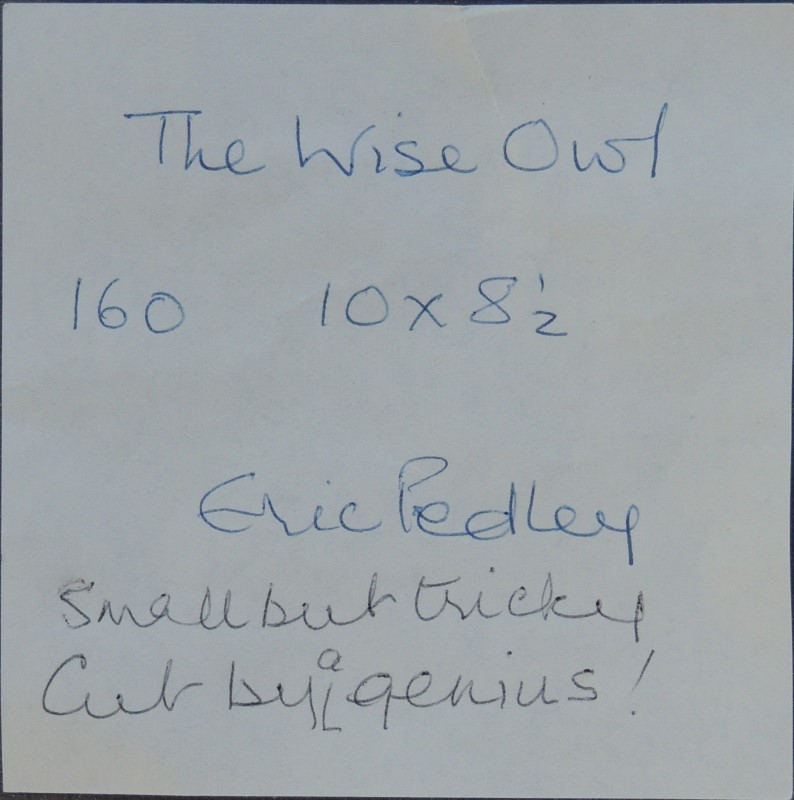 The Wise Owl
160 10 x 8½
Eric Pedley
Small but tricky
Cut by a genius!